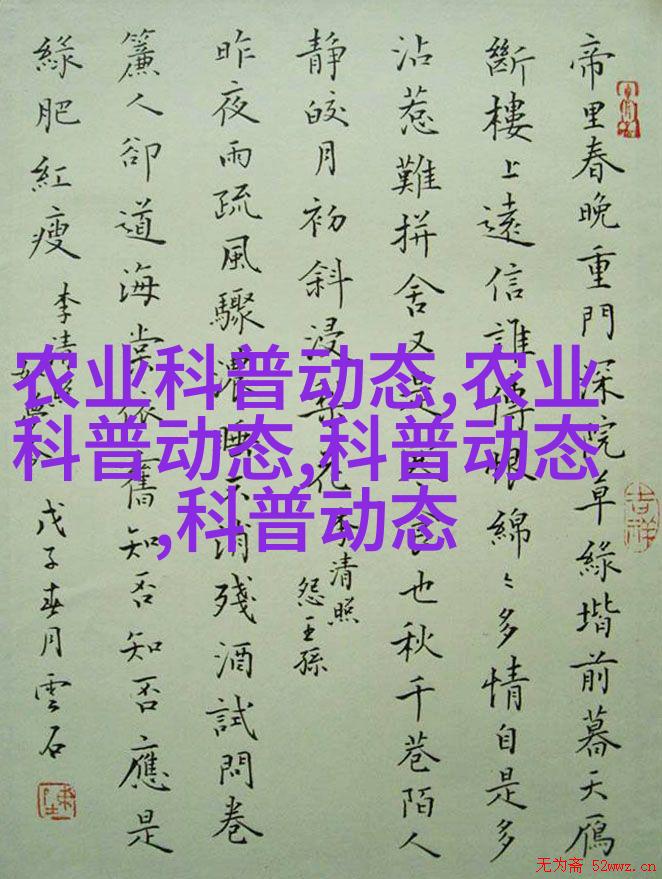 帝里春晚重門深院草綠堦前暮天鴈
斷樓上遠信誰傳恨綿〻多情自是多
沾惹難拼舍又是寒食也秋千巷陌人
静皎月初斜浸梨花
李清照
怨王孫
昨夜雨疏風驟濃睡不消殘酒試問卷
簾人卻道海棠依舊知否知否應是
綠肥紅瘦
李清照
如夢令
戊子春月雲石
吉祥
农业科普动态,农业
科普动态,科普动态
,科普动态
无为斋 52wwz.cn